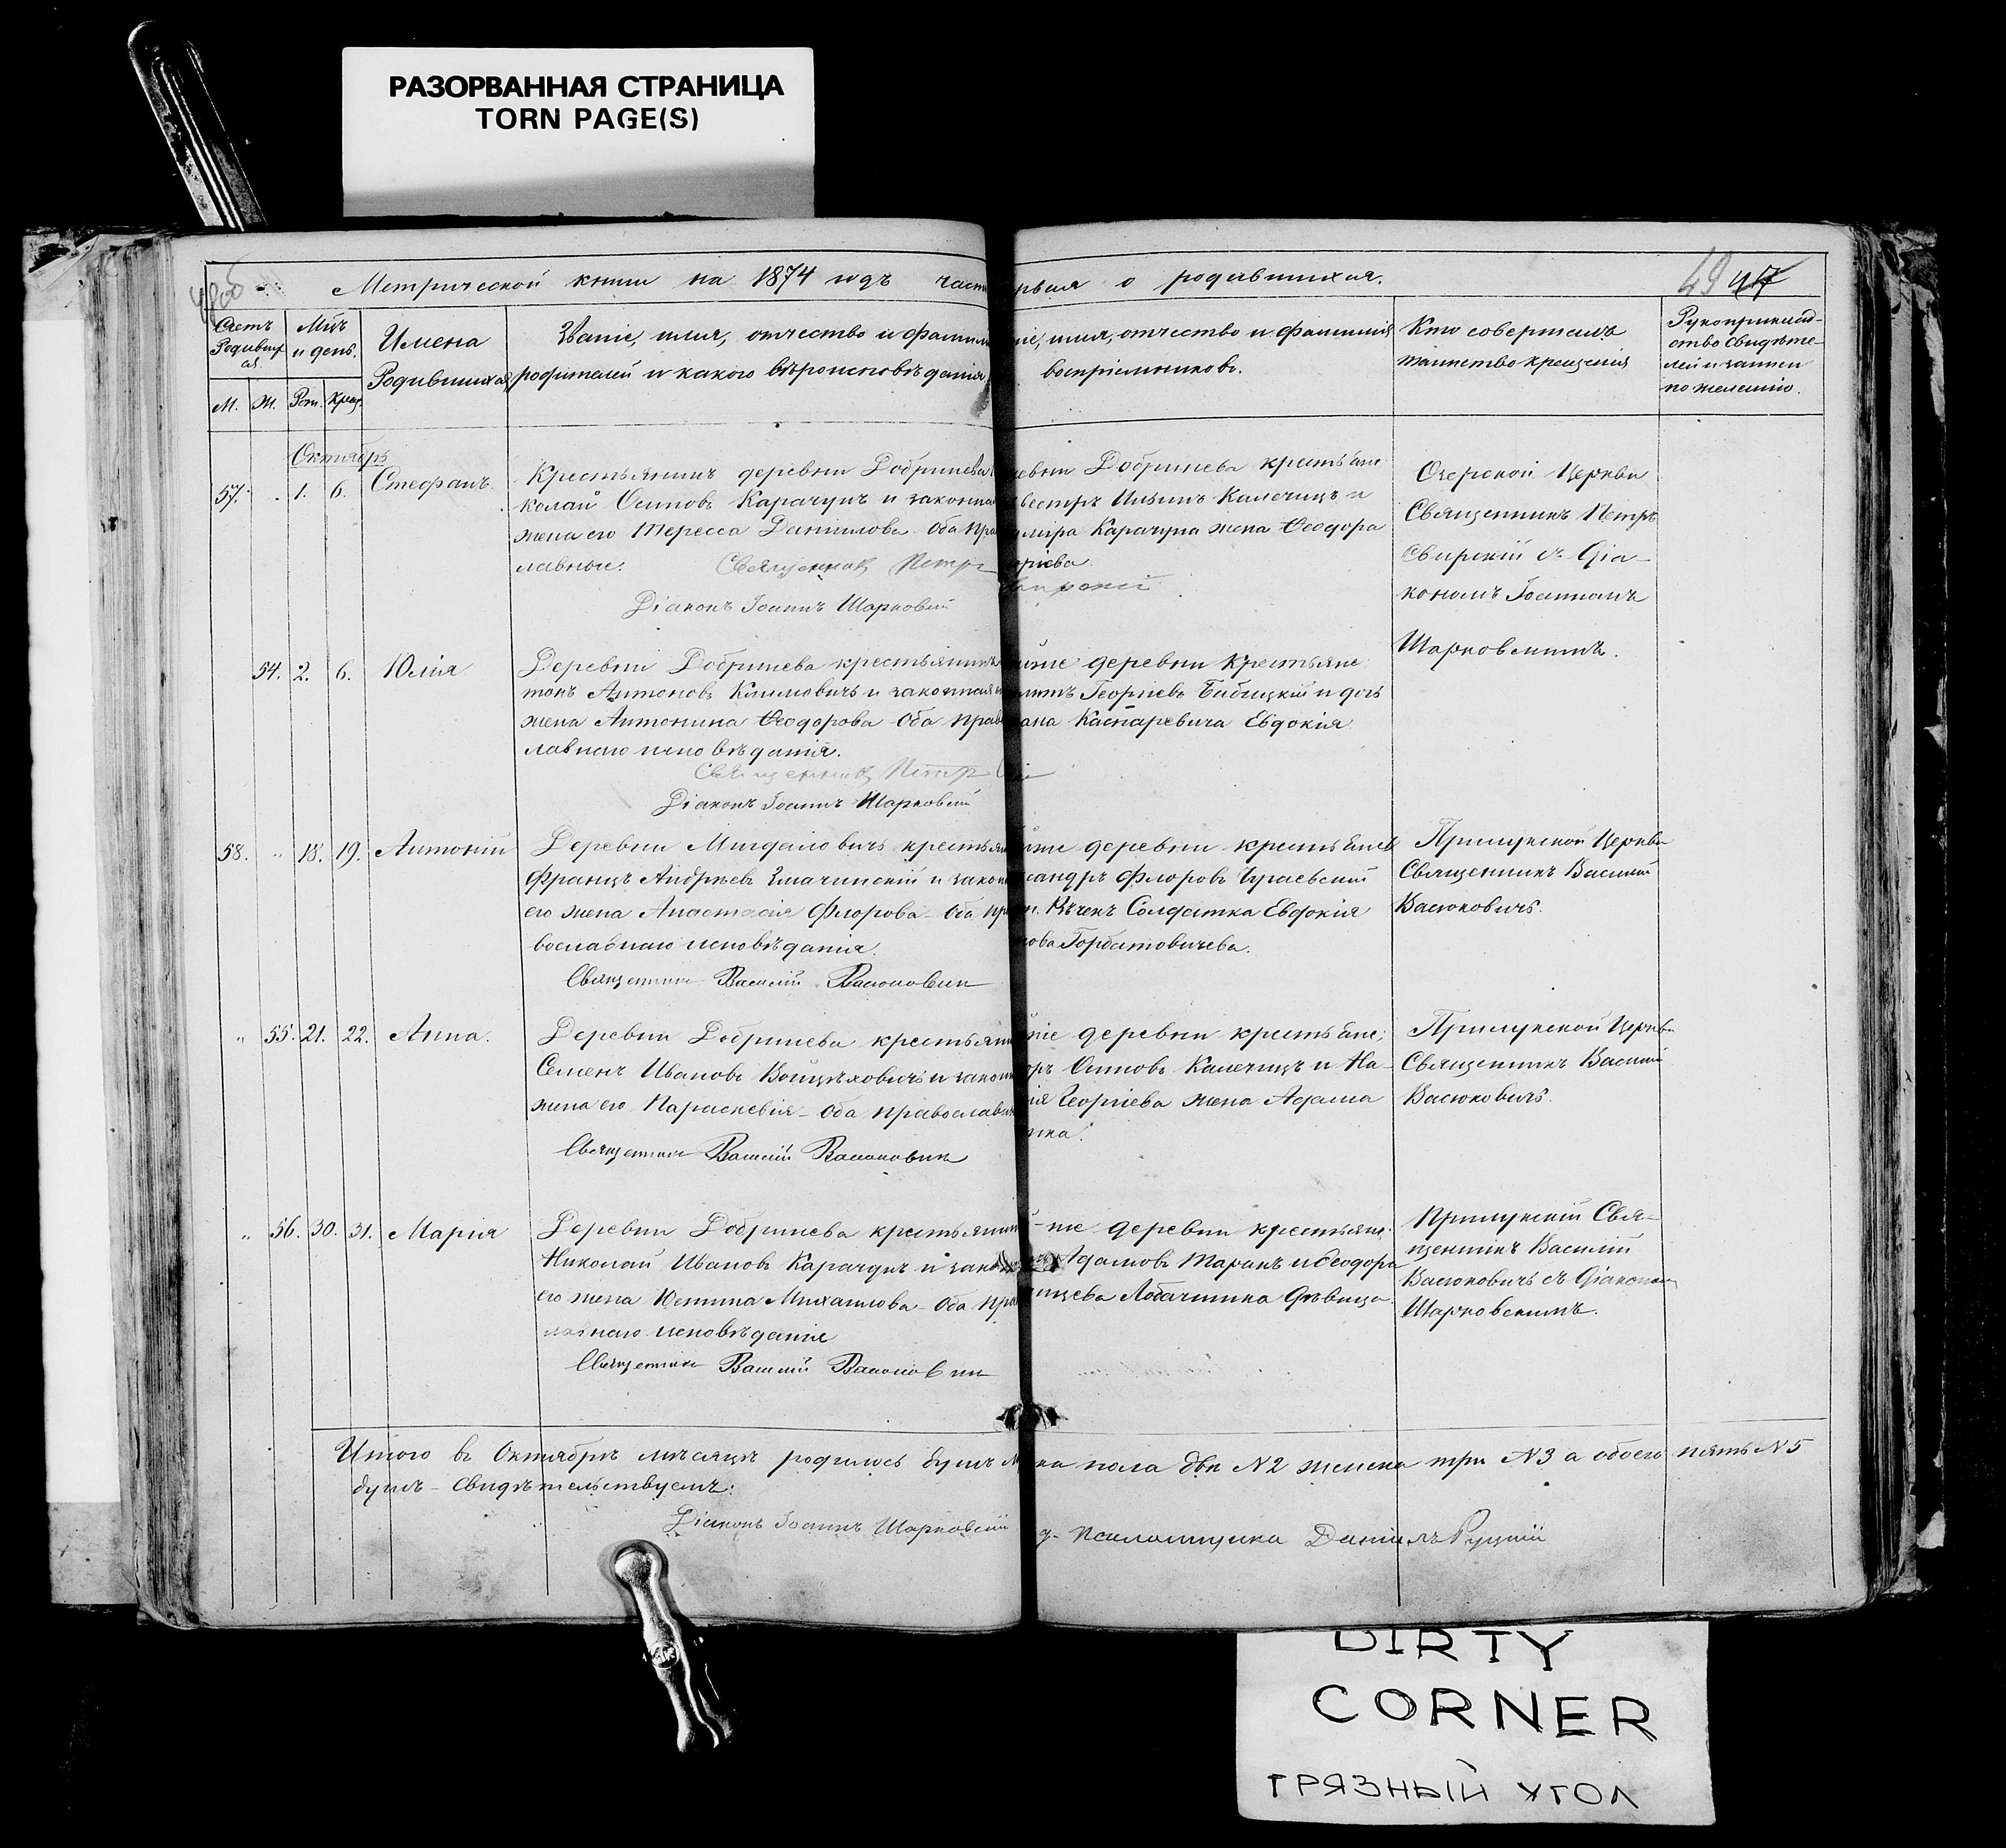 РАЗОРВАННАЯ СТРАНИЦА
TORN PAGE(S)
Метрической книги на 1874 годъ част
рвая о родившихся.
49 47
Счетъ Родивших ся.
Мц҃ъ и день.
М. Ж. Рож. Крещ.
Имена Родившихся
Званіе, имя, отчество и фамил
родителей и какого вѣроисповѣданія
ніе, имя, отчество и фамилія
воспріемниковъ.
Кто совершалъ
таинство крещенія
Рукоприклад-
ство свидѣте-
лей и записи
по желанію.
Октябрь
57. . 1. 6. Стефанъ.
Крестьянинъ деревни Добринева
колай Осиповъ Карачунъ и законная
жена его Тересса Данилова Оба пра
лавные. Священникъ Петръ
Діаконъ Іоаннъ Шарковскій
евни Добринева крестьяне
вестръ Ильинъ Калечицъ и
иміра Карачуна жена Ѳеодора
ргіева
Свирскій
Озерской Церкви
Священникъ Петръ
Свирскій съ Діа-
кономъ Іоанномъ
Шарковскимъ.
54. 2. 6. Юлія
Деревни Добринева крестьянинъ
тонъ Антоновъ Климовичъ и законная
жена Антонина Ѳеодорова Оба прав
лавнаго исповѣданія.
Священникъ Петръ Сви
Діаконъ Іоаннъ Шарковскій
йже деревни Крестьяне
Георгіевъ Бибицкій и дочь
ана Каспаревича Евдокія
58. " 18. 19. Антоній
Деревни Мигдаловичъ крестьян
Францъ Андреевъ Змачинскій и закон
его жена Анастасія Флорова Оба пр
вославнаго исповѣданія.
Священникъ Василій Васюковичъ
йже деревни крестьяне
сандръ Флоровъ Чугаевскій
Вѣченъ Солдатка Евдокія
нова Горбатовичева.
Прилукской Церкви
Священникъ Василій
Васюковичъ.
" 55. 21. 22. Анна.
Деревни Добринева крестьянин
Семенъ Ивановъ Войцѣховичъ и закон
жена его Параскевія Оба православн
Священникъ Василій Васюковичъ
же деревни крестьяне;
оръ Осиповъ Калечицъ и На-
ія Георгіева жена Адама
ика.
Прилукской Церкви
Священникъ Василій
Васюковичъ.
" 56. 30. 31. Марія
Деревни Добринева крестьянин
Николай Ивановъ Карачунъ и зако
его жена Юстина Михаилова Оба пра
лавнаго исповѣданія
Священникъ Василій Васюкович
же деревни крестьяне.
Адамовъ Таранъ и Ѳеодора
Лобачника Дѣвица.
Прилукскій Свя-
щенникъ Василій
Васюковичъ съ Діаконом
Шарковскимъ.
Итого въ Октябрѣ мѣсяцѣ родилось душъ М
ска пола два N 2 женска три N 3 а обоего пять N 5
душъ свидѣтельствуемъ:
Діаконъ Іоаннъ Шарковскій
д. псаломщика Даніилъ Руцкій
DIRTY
CORNER
ГРЯЗНЫЙ УГОЛ